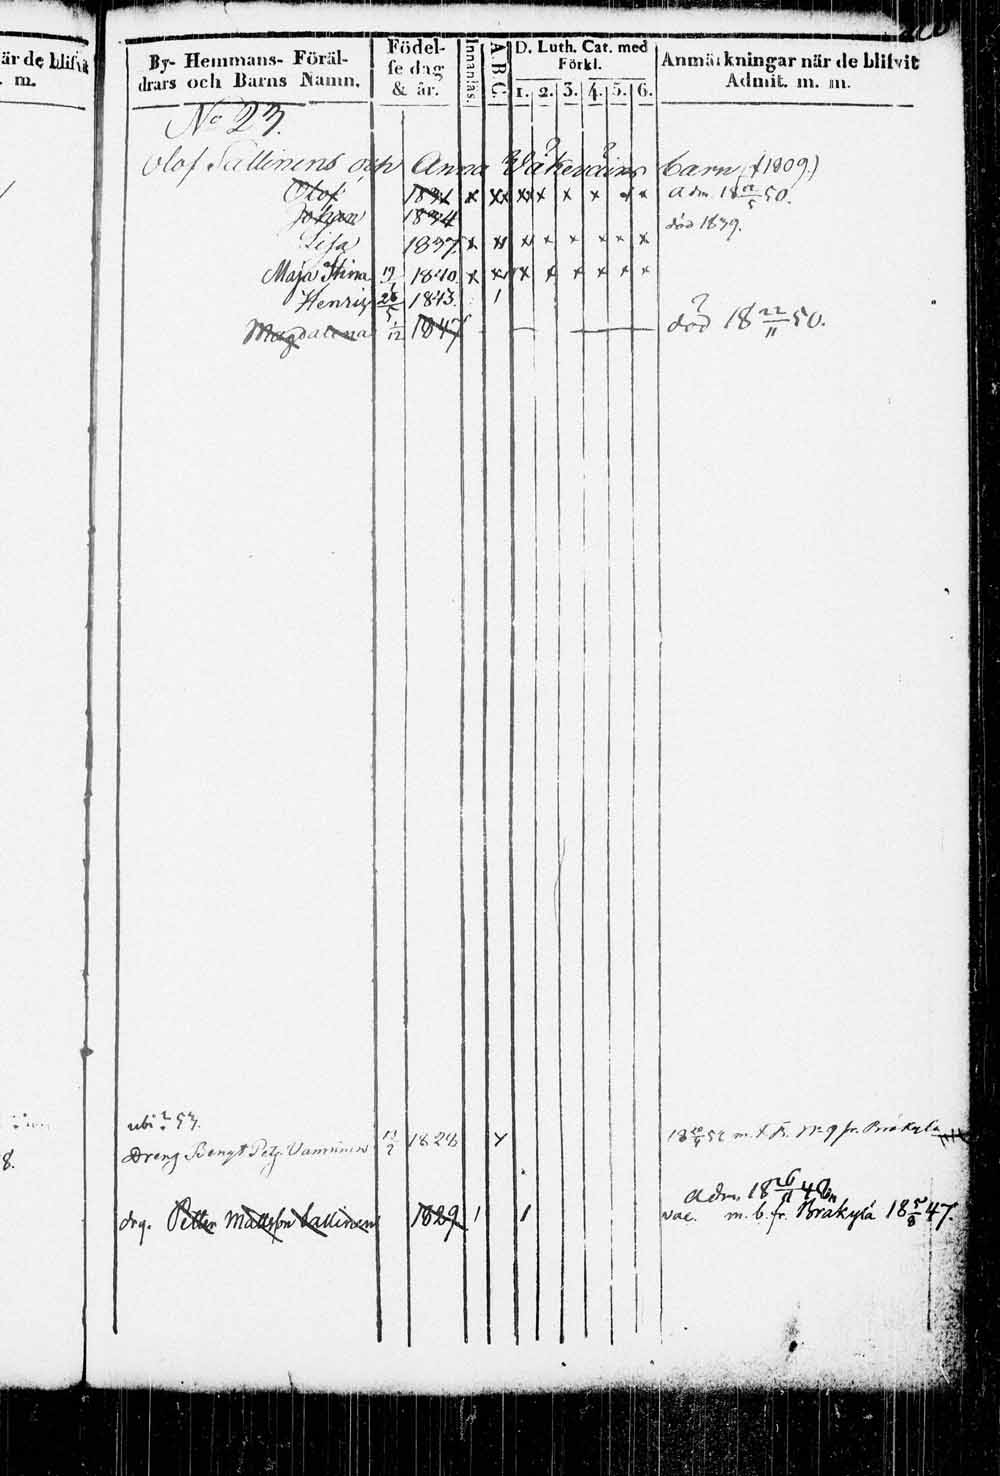 är de blifvit
. m.
By- Hemmans- Föräl-
drars och Barns Namn.
Födel-
se dag
& år.
Innanläs.
A.B.C.
D. Luth. Cat. med
Förkl.
1. 2. 3. 4. 5. 6.
Anmärkningar när de blifvit
Admit. m. m.
No 23.
Olof Sallinens och Anna barn (1809.)
Olof 1831 x xx xx x x x x x Adm. 18 22/5 50.
Johan 1834 död 1839.
Lisa 1837. x x x x x x x x
Maja Stina 19/1 1840. x x x x x x x x
Henrik 26/5 1843. 1
Magdalena 5/12 1847 död 18 22/11 50.
8.
ubi? 53.
Dreng Bengt Vanninen 1828 x m. fr. Bräkylä
Adm. 18 26/11 48
drg. Petter Mattsson Sallinen 1829 1 1 vac. m. b. fr. Bräkylä 18 5/8 47.